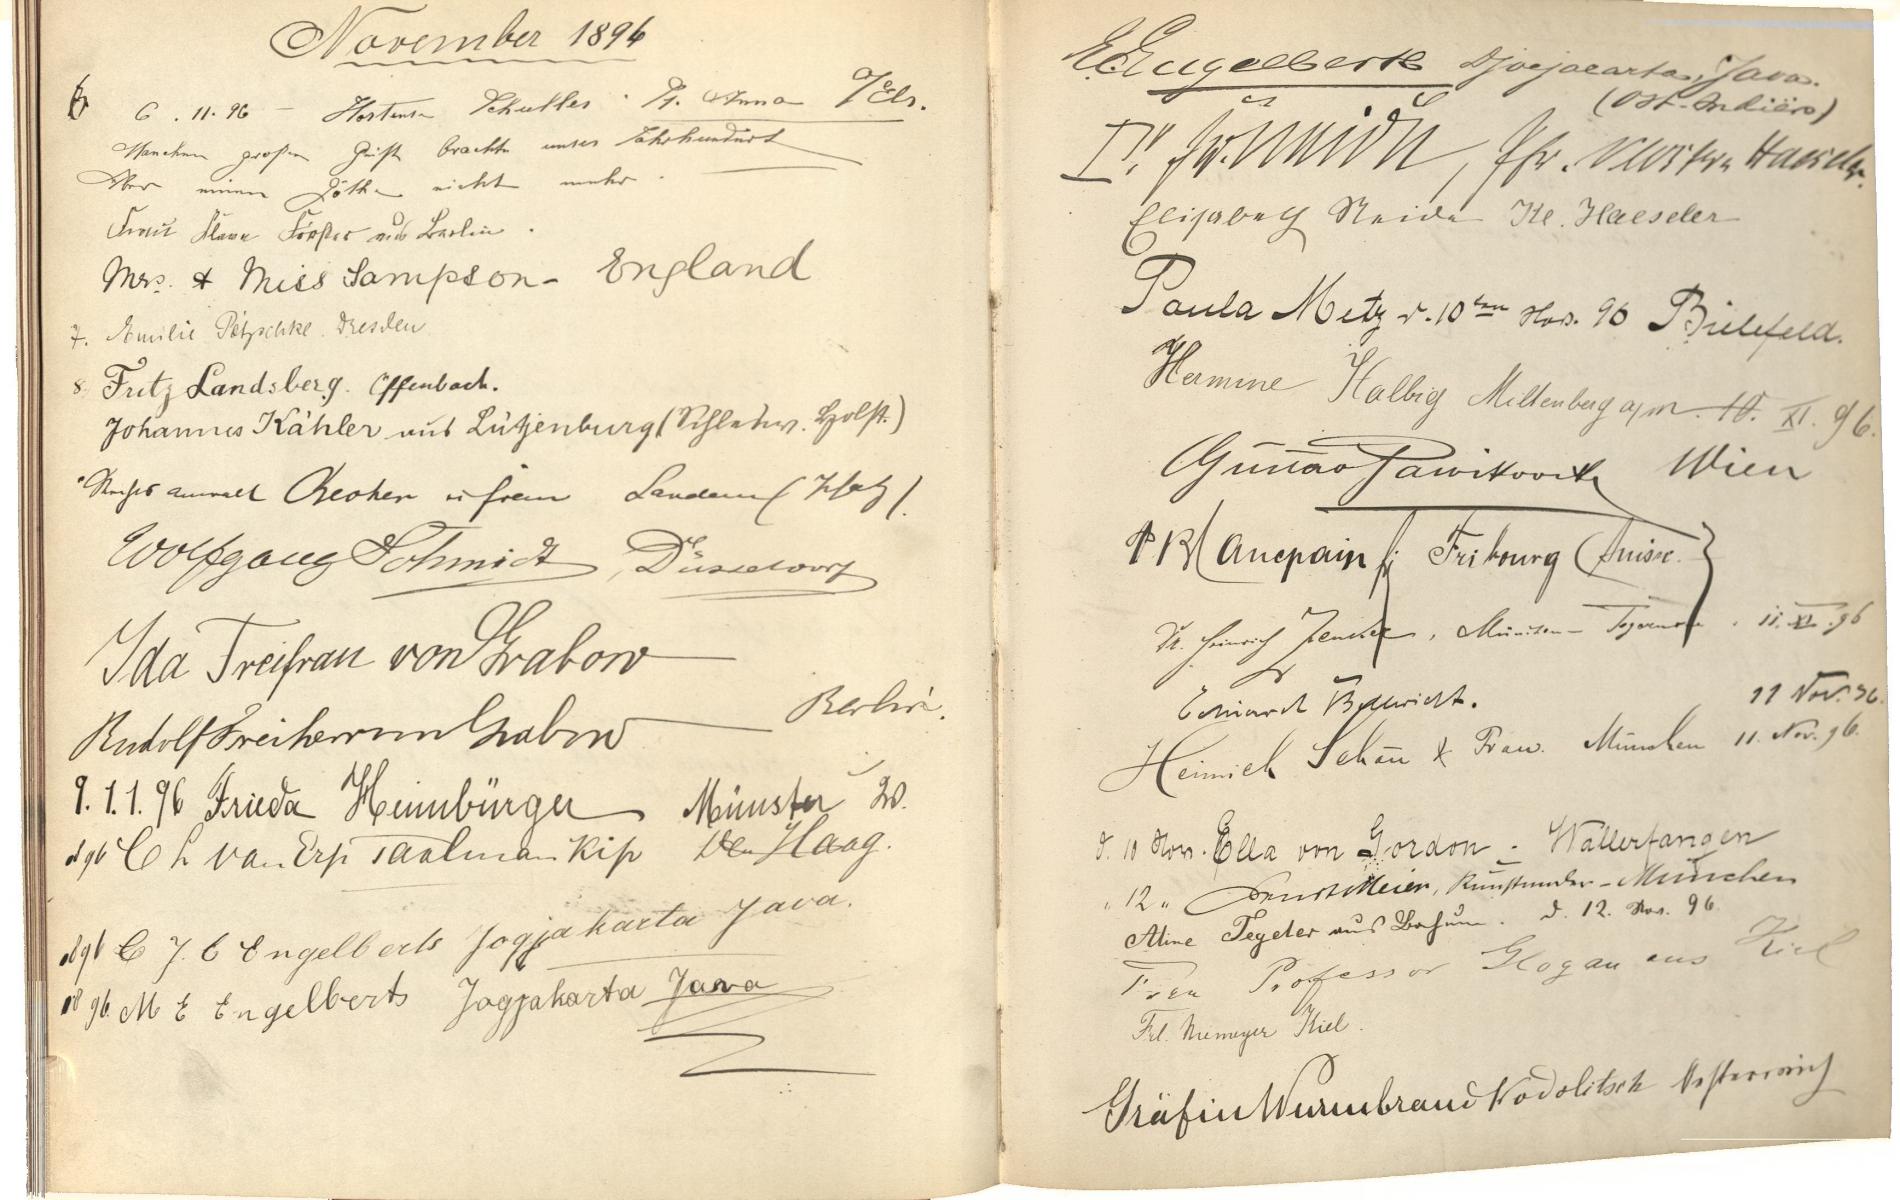 November 1896
6. 11. 96 - Hortense Schulles. Fr. Anna
Manchen großen Geist brachte unser Jahrhundert
Aber einen Göthe nicht mehr.
Frau Förster aus Berlin.
Mrs. & Miss Sampson - England
7. Emilie Petzschke. Dresden
8. Fritz Landsberg. Offenbach.
Johannes Kähler aus Lütjenburg (Schlesw. Holst.)
Landau (Pfalz).
Wolfgang Schmidt, Düsseldorf
Ida Freifrau von Grabow
Rudolf Freiherr von Grabow Berlin.
9. 11. 96 Frieda Heimbürger Münster W.
C L van Erp Taalman Kip Den Haag.
1896 C J. C Engelberts Jogjakarta Java.
1896. M E Engelberts Jogjakarta Java
E. Engelberts Djocjacarta, Java.
(Ost-Indiën)
Elisabeth Neide Kl. Haeseler
Paula Metz d. 10ten Nov. 96 Bielefeld.
Hermine Halbig Miltenberg a/m. 10. XI. 96.
Wien
Fribourg (Suisse.
Dr. Heinrich München - 11. XI. 96
11 Nov. 96.
Heinrich Schön & Frau. München 11. Nov. 96.
d. 10 Nov. Ella von Gordon - Wallerfangen
" 12 " Ernst Meier, Kunstmaler - München
Aline Tegeler aus Bochum. d. 12. Nov. 96.
Frau Professor Glogau aus Kiel
Frl. Niemeyer Kiel.
Gräfin Wurmbrand Kodolitsch Oesterreich